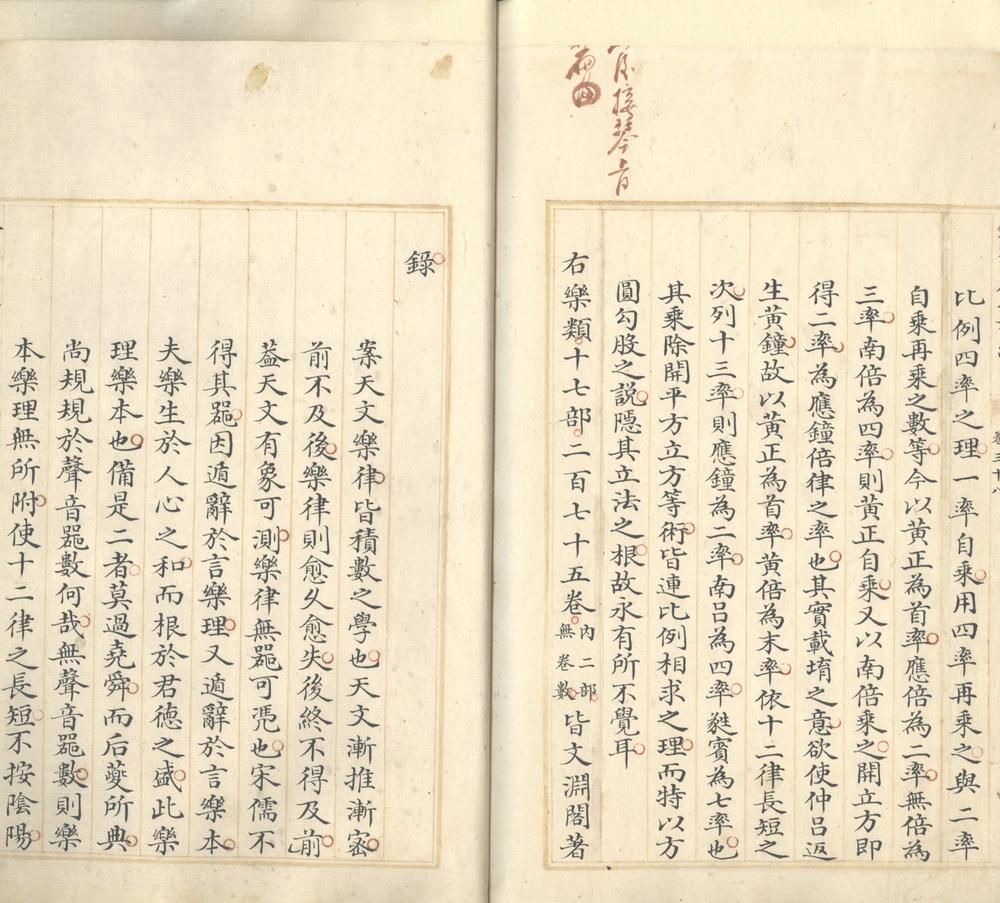 比例四率之理一率自乘用四率再乘之與二率
自乘再乘之數等今以黃正為首率應倍為二率無倍為
三率南倍為四率則黃正自乘又以南倍乘之開立方即
得二率為應鐘倍律之率也其實載堉之意欲使仲呂返
生黃鐘故以黃正為首率黃倍為末率依十二律長短之
次列十三率則應鐘為二率南呂為四率蕤賓為七率也
其乘除開平方立方等術皆連比例相求之理而特以方
圓勾股之說隱其立法之根故永有所不覺耳
右樂類十七部二百七十五卷內二部無卷數皆文淵閣著
錄
案天文樂律皆積數之學也天文漸推漸密
前不及後樂律則愈久愈失後終不得及前
葢天文有象可測樂律無器可凴也宋儒不
得其器因遁辭於言樂理又遁辭於言樂本
夫樂生於人心之和而根於君德之盛此樂
理樂本也備是二者莫過堯舜而后夔所典
尚規規於聲音器數何哉無聲音器數則樂
本樂理無所附使十二律之長短不按陰陽